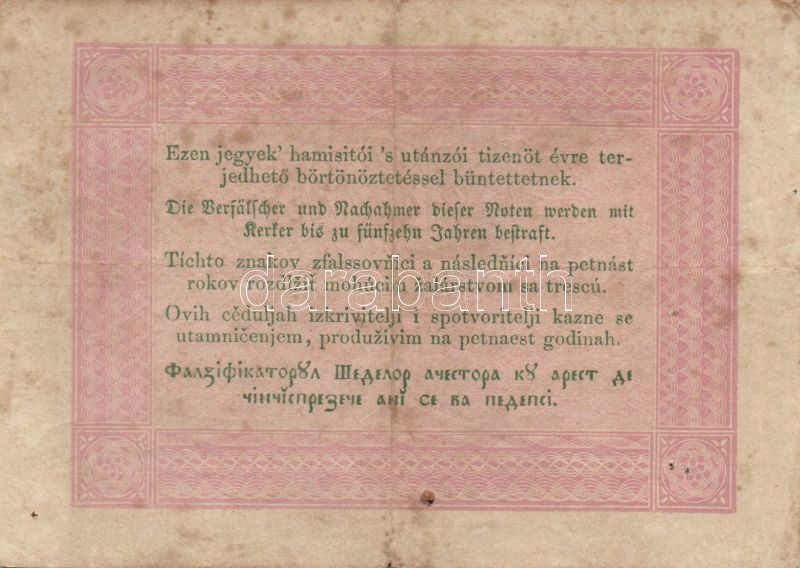 Ezen jegyek' hamisitói 's utánzói tizenöt évre ter-
jedhető börtönöztetéssel büntettetnek.
Die Verfälscher und Nachahmer dieser Noten werden mit
Kerker bis zu fünfzehn Jahren bestraft.
Tíchto znakov zfalssovňici a následňíci na petnást
rokov rozďížiť mohúcim žalárstvom sa trescú.
Ovih cěduljah izkrivitelji i spotvoritelji kazne se
utamničenjem, produživim na petnaest godinah.
Фалзіфікаторꙋл Шеделор ачестора кꙋ арест де
чінчіспрезече ані се ва педепсі.
darabanth